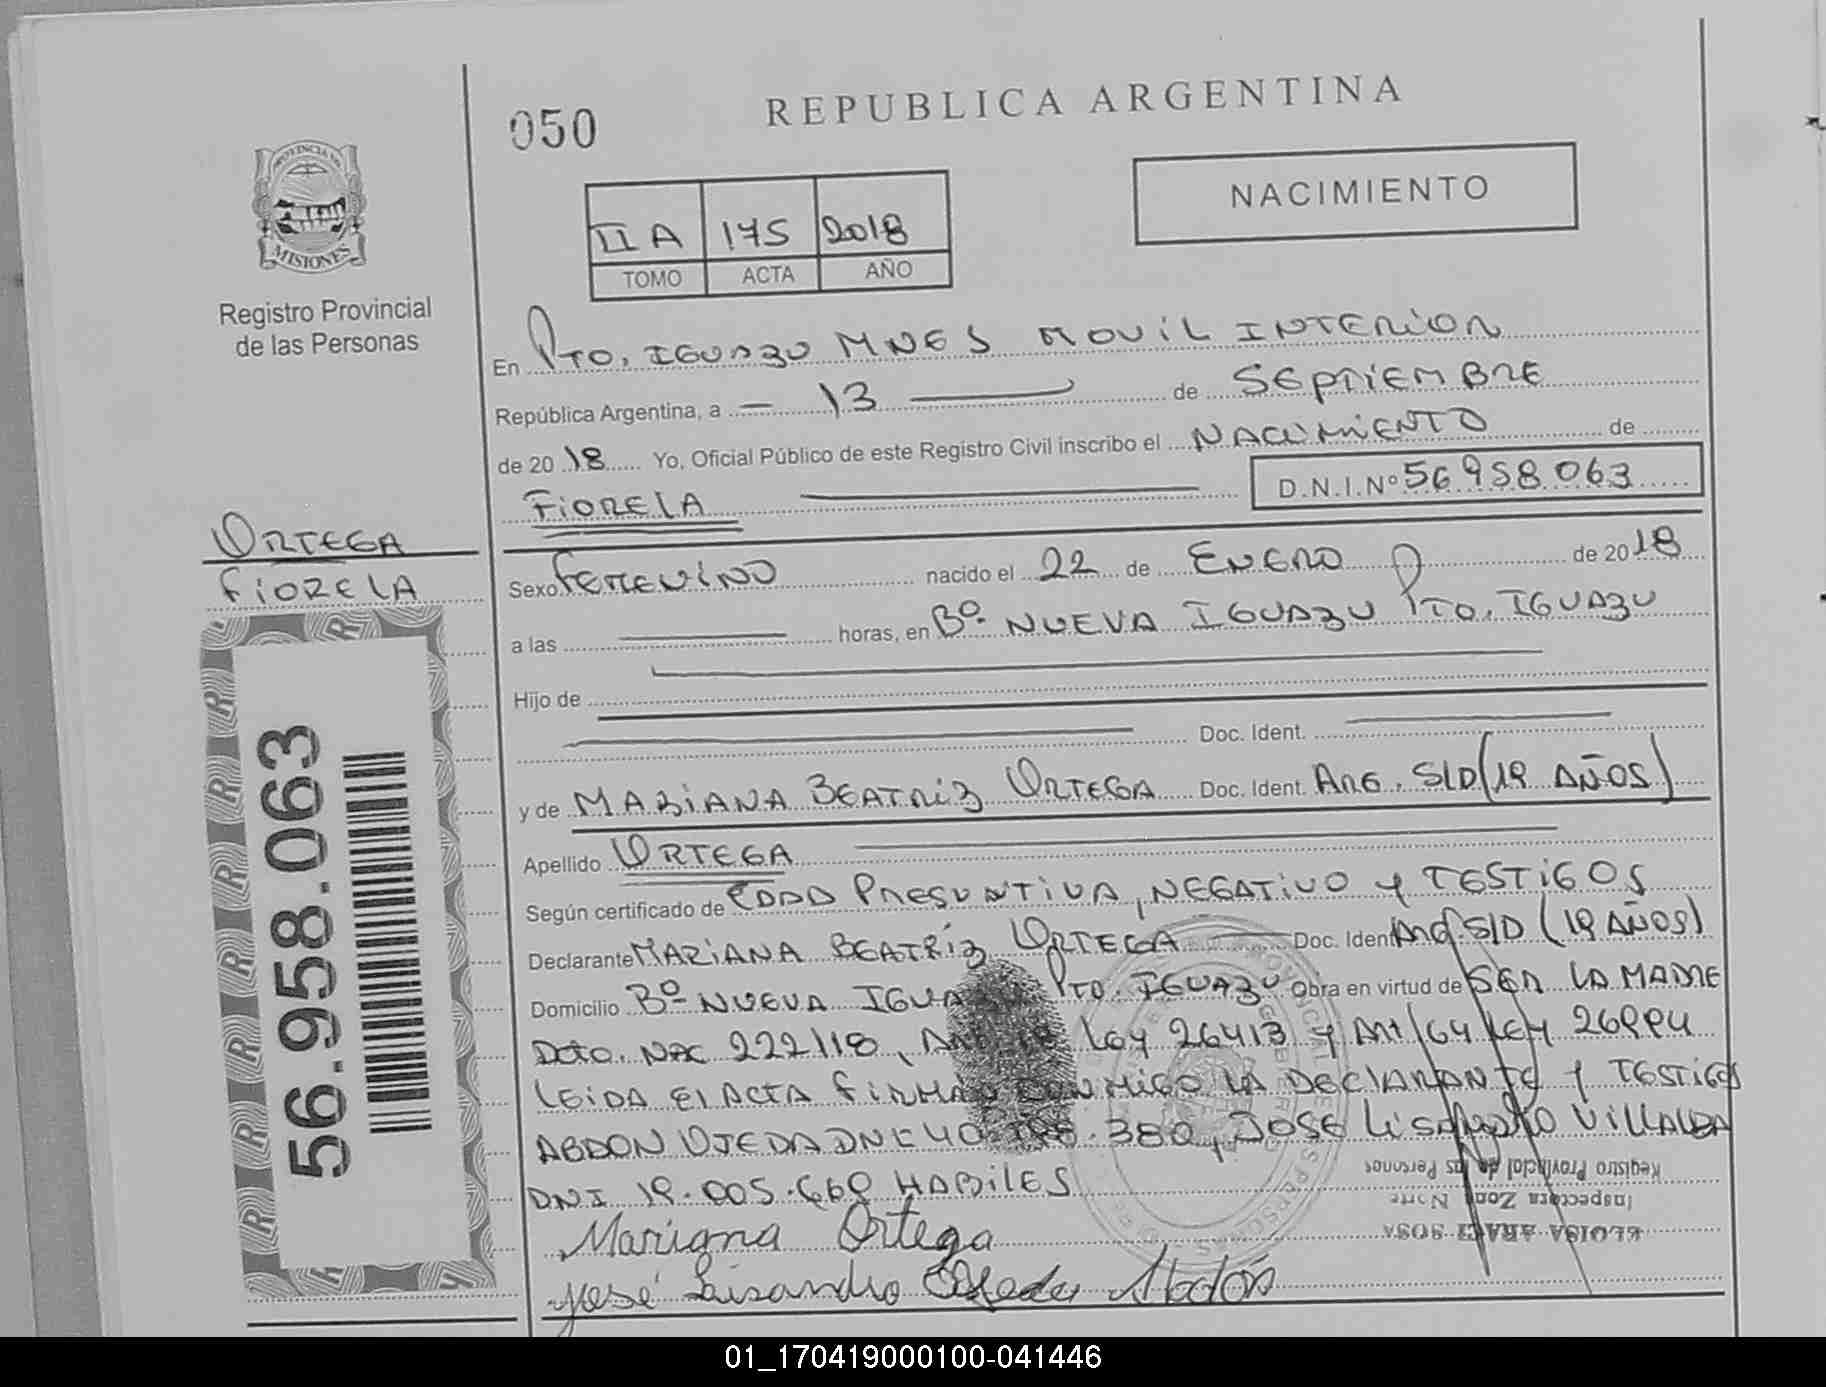 050
REPUBLICA ARGENTINA
PROVINCIA DE
MISIONES
Registro Provincial
de las Personas
II A 175 2018
TOMO ACTA AÑO
NACIMIENTO
En PTO. IGUAZU MNES MOVIL INTERIOR
República Argentina, a - 13 de SEPTIEMBRE
de 20 18 Yo, Oficial Público de este Registro Civil inscribo el NACIMIENTO de
FIORELA D.N.I.Nº 56958063
ORTEGA
FIORELA
Sexo FEMENINO nacido el 22 de ENERO de 2018
a las horas, en Bº NUEVA IGUAZU PTO. IGUAZU
Hijo de
Doc. Ident.
y de MARIANA BEATRIZ ORTEGA Doc. Ident. ARG. S/D (19 AÑOS)
Apellido ORTEGA
Según certificado de EDAD PRESUNTIVA, NEGATIVO y TESTIGOS
Declarante MARIANA BEATRIZ ORTEGA Doc. Ident ARG. S/D (19 AÑOS)
Domicilio Bº NUEVA IGUAZU PTO. IGUAZU Obra en virtud de SER LA MADRE
Dcto. NAC 222/18, Ley 26413 y Art 64 Ley 26994
LEIDA El ACTA FIRMAN CONMIGO LA DEClARANTE y TESTIGOS
ABDON OJEDA DNI 40 .380, JOSE LISANDRO VILLALBA
DNI 19.005.669 HABILES
Mariana Ortega
José Lisandro Ojeda Abdón
Registro Provincial de las Personas
Inspectora Zona Norte
ELOISA ARACI SOSA
56.958.063
01_170419000100-041446